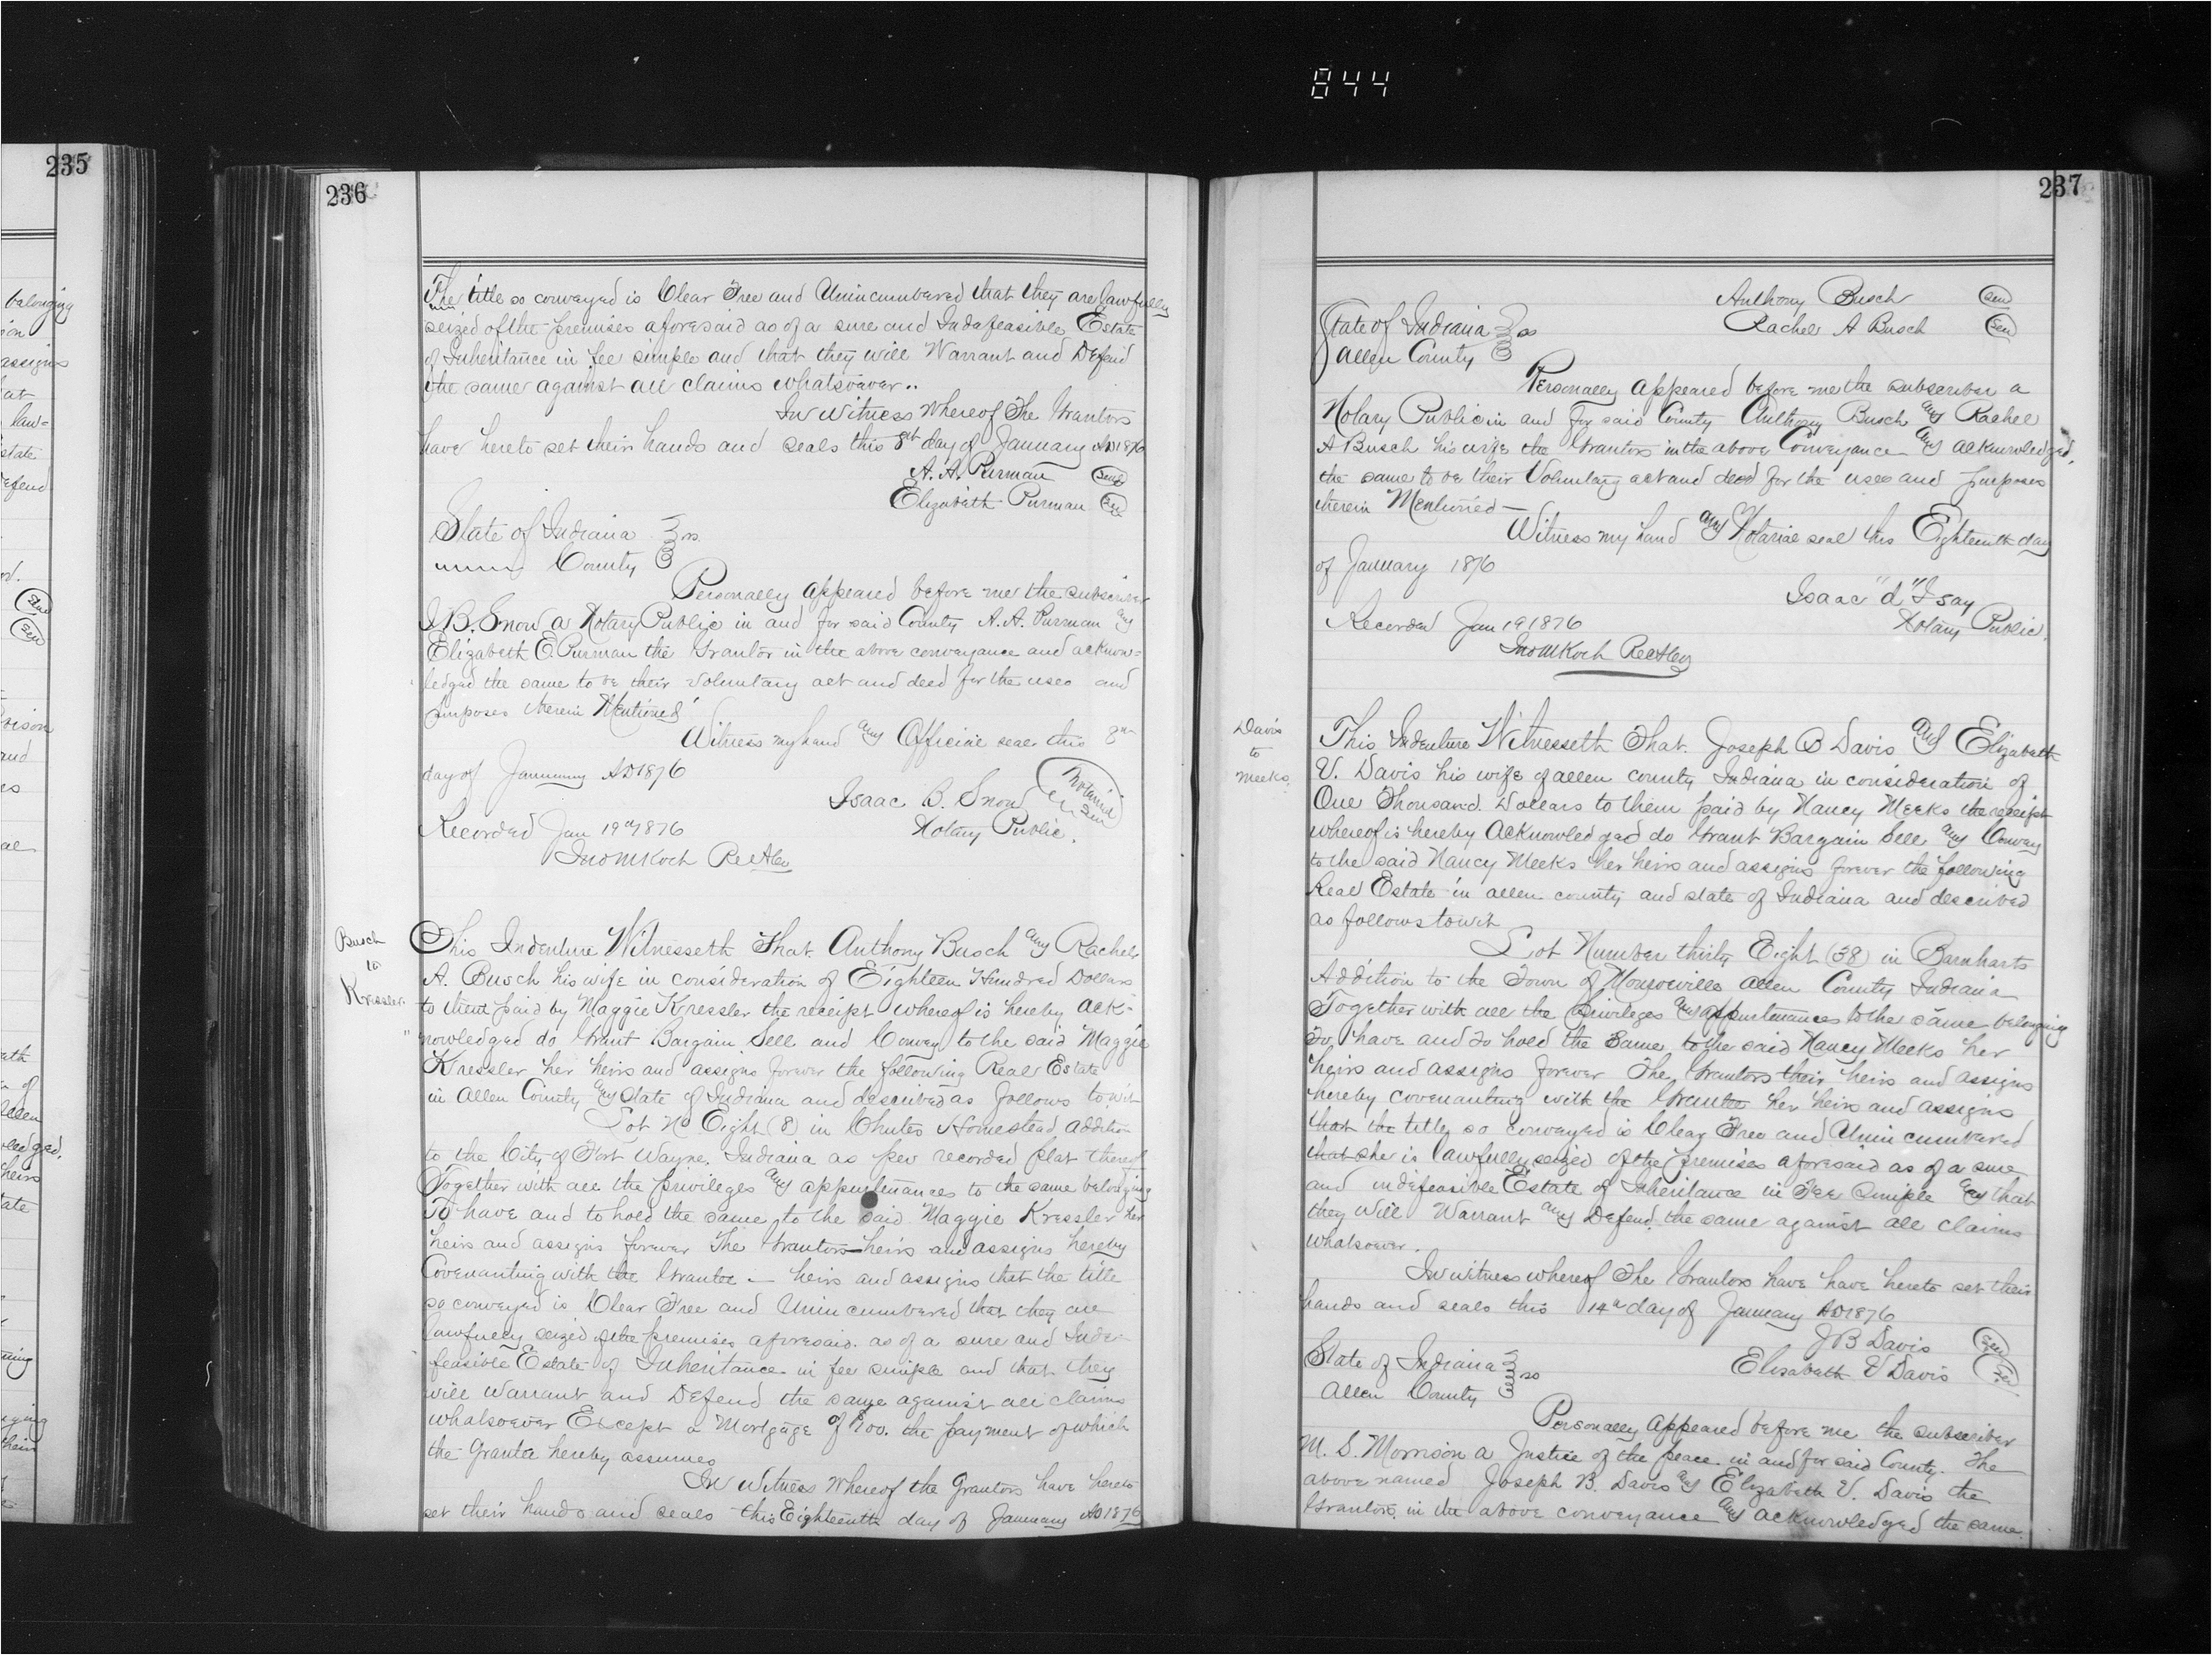 844
235
belonging
assigns
at
law=
state
Defend
Seal
Seal
and
of
Allen
ledged.
heirs
tate
their
236
The title so conveyed is Clear Free and Unincumbered that they are lawfully
seized of the premises aforesaid as of a sure and Indafeasible Estate
of Inheritance in fee simple and that they will Warrant and Defend
the same against all claims whatsoever..
In Witness Whereof The Grantors
have hereto set their hands and seals this 8th day of January AD 1876
A. A. Purman Seal
Elizabeth Purman Seal
State of Indiana ss.
County
Personally appeared before me the subscriber
I. B. Snow a Notary Public in and for said County A. A. Purman and
Elizabeth E. Purman the Grantor in the above conveyance and acknow=
ledged the same to be their Voluntary act and deed for the uses and
purposes therein Mentioned
Witness my hand and Official seal this 8th
day of January AD 1876
Isaac B. Snow Notarial Seal
Notary Public.
Recorded Jan 19th 1876
Jno M Koch Rec Allen
Busch
to
Kressler
This Indenture Witnesseth That Anthony Busch and Rachel
A. Busch his wife in consideration of Eighteen Hundred Dollars
to them paid by Maggie Kressler the receipt whereof is hereby ack-
nowledged do Grant Bargain Sell and Convey to the said Maggie
Kressler her heirs and assigns forever the following Real Estate
in Allen County and State of Indiana and described as follows to wit
Lot No Eight (8) in Chutes Homestead addition
to the City of Fort Wayne, Indiana as per recorded plat thereof
Together with all the privileges and appurtenances to the same belonging
To have and to hold the same to the said Maggie Kressler her
heirs and assigns forever The Grantors heirs and assigns hereby
Covenanting with the Grantee — heirs and assigns that the title
so conveyed is Clear Free and Unincumbered that they are
lawfully seized of the premises aforesaid. as of a sure and Inde-
feasible Estate of Inheritance in fee simple and that they
will Warrant and Defend the same against all claims
whatsoever Except a Mortgage of the payment of which
the Grantee hereby assumes
In Witness Whereof the Grantors have hereto
set their hands and seals this Eighteenth day of January AD 1876
237
Anthony Busch Seal
Rachel A Busch Seal
State of Indiana ss
Allen County
Personally appeared before me the subscriber a
Notary Public in and for said County Anthony Busch and Rachel
A Busch his wife the Grantors in the above Conveyance and acknowledged
the same to be their Voluntary act and deed for the uses and purposes
therein Mentioned —
Witness my hand and Notarial seal this Eighteenth day
of January 1876
Isaac "d" Isay
Notary Public.
Recorded Jan 19 1876
Jno M Koch Rec Allen
Davis
to
Meeks.
This Indenture Witnesseth That. Joseph B Davis and Elizabeth
V. Davis his wife of Allen county Indiana in consideration of
One Thousand. Dollars to them paid by Nancy Meeks the receipt
whereof is hereby Acknowledged do Grant Bargain Sell and Convey
to the said Nancy Meeks her heirs and assigns forever the following
Real Estate in Allen county and state of Indiana and described
as follows to wit
Lot Number thirty Eight (38) in Barnharts
Addition to the Town of Monroeville Allen County Indiana
Together with all the Privileges and appurtenances to the same belonging
To have and to hold the same to the said Nancy Meeks her
heirs and assigns forever The Grantors their heirs and assigns
hereby covenanting with the Grantee her heirs and assigns
that the title so conveyed is Clear Free and Unincumbered
that she is lawfully seized of the premises aforesaid as of a sure
and indefeasible Estate of Inheritance in Fee Simple and that
they will Warrant and Defend the same against all claims
whatsoever.
In witness whereof The Grantors have have hereto set their
hands and seals this 14th day of January AD 1876
J B Davis Seal
Elizabeth V Davis Seal
State of Indiana ss
Allen County
Personally appeared before me the subscriber
M. S. Morrison a Justice of the peace in and for said County. The
above named Joseph B. Davis and Elizabeth V. Davis the
Grantors in the above conveyance and acknowledged the same